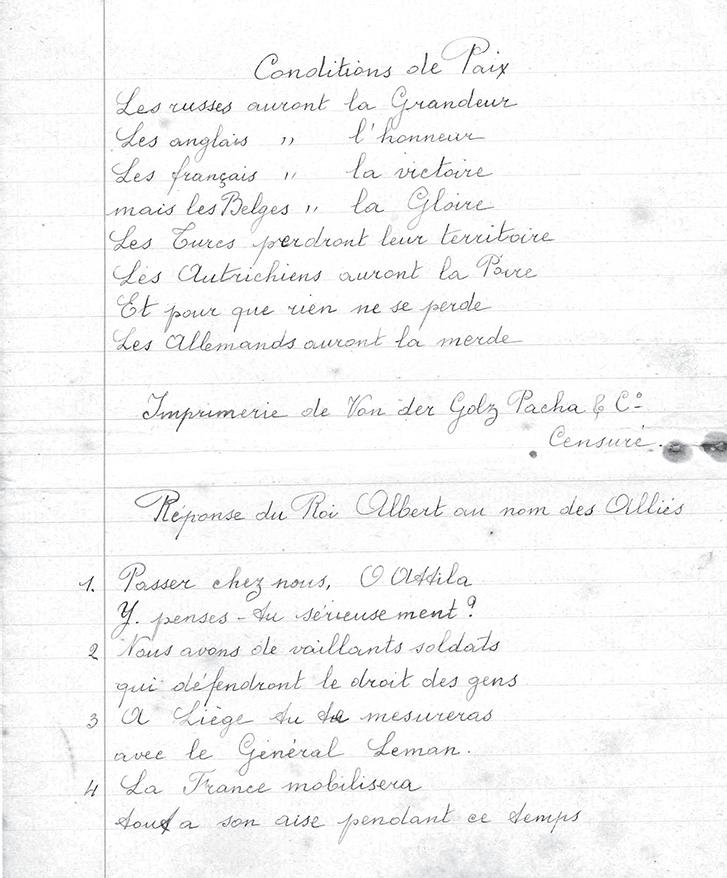 Conditions de Paix
Les russes auront la Grandeur
Les anglais " l'honneur
Les français " la victoire
mais les Belges " la Gloire
Les Turcs perdront leur territoire
Les Autrichiens auront la Poire
Et pour que rien ne se perde
Les Allemands auront la merde
Imprimerie de Von der Golz Pacha & Cº
Censuré.
Réponse du Roi Albert au nom des Alliés
1. Passer chez nous, O Attila
Y. penses-tu sérieusement?
2 Nous avons de vaillants soldats
qui défendront le droit des gens
3 A Liège tu te mesureras
avec le Général Leman.
4 La France mobilisera
tout a son aise pendant ce temps